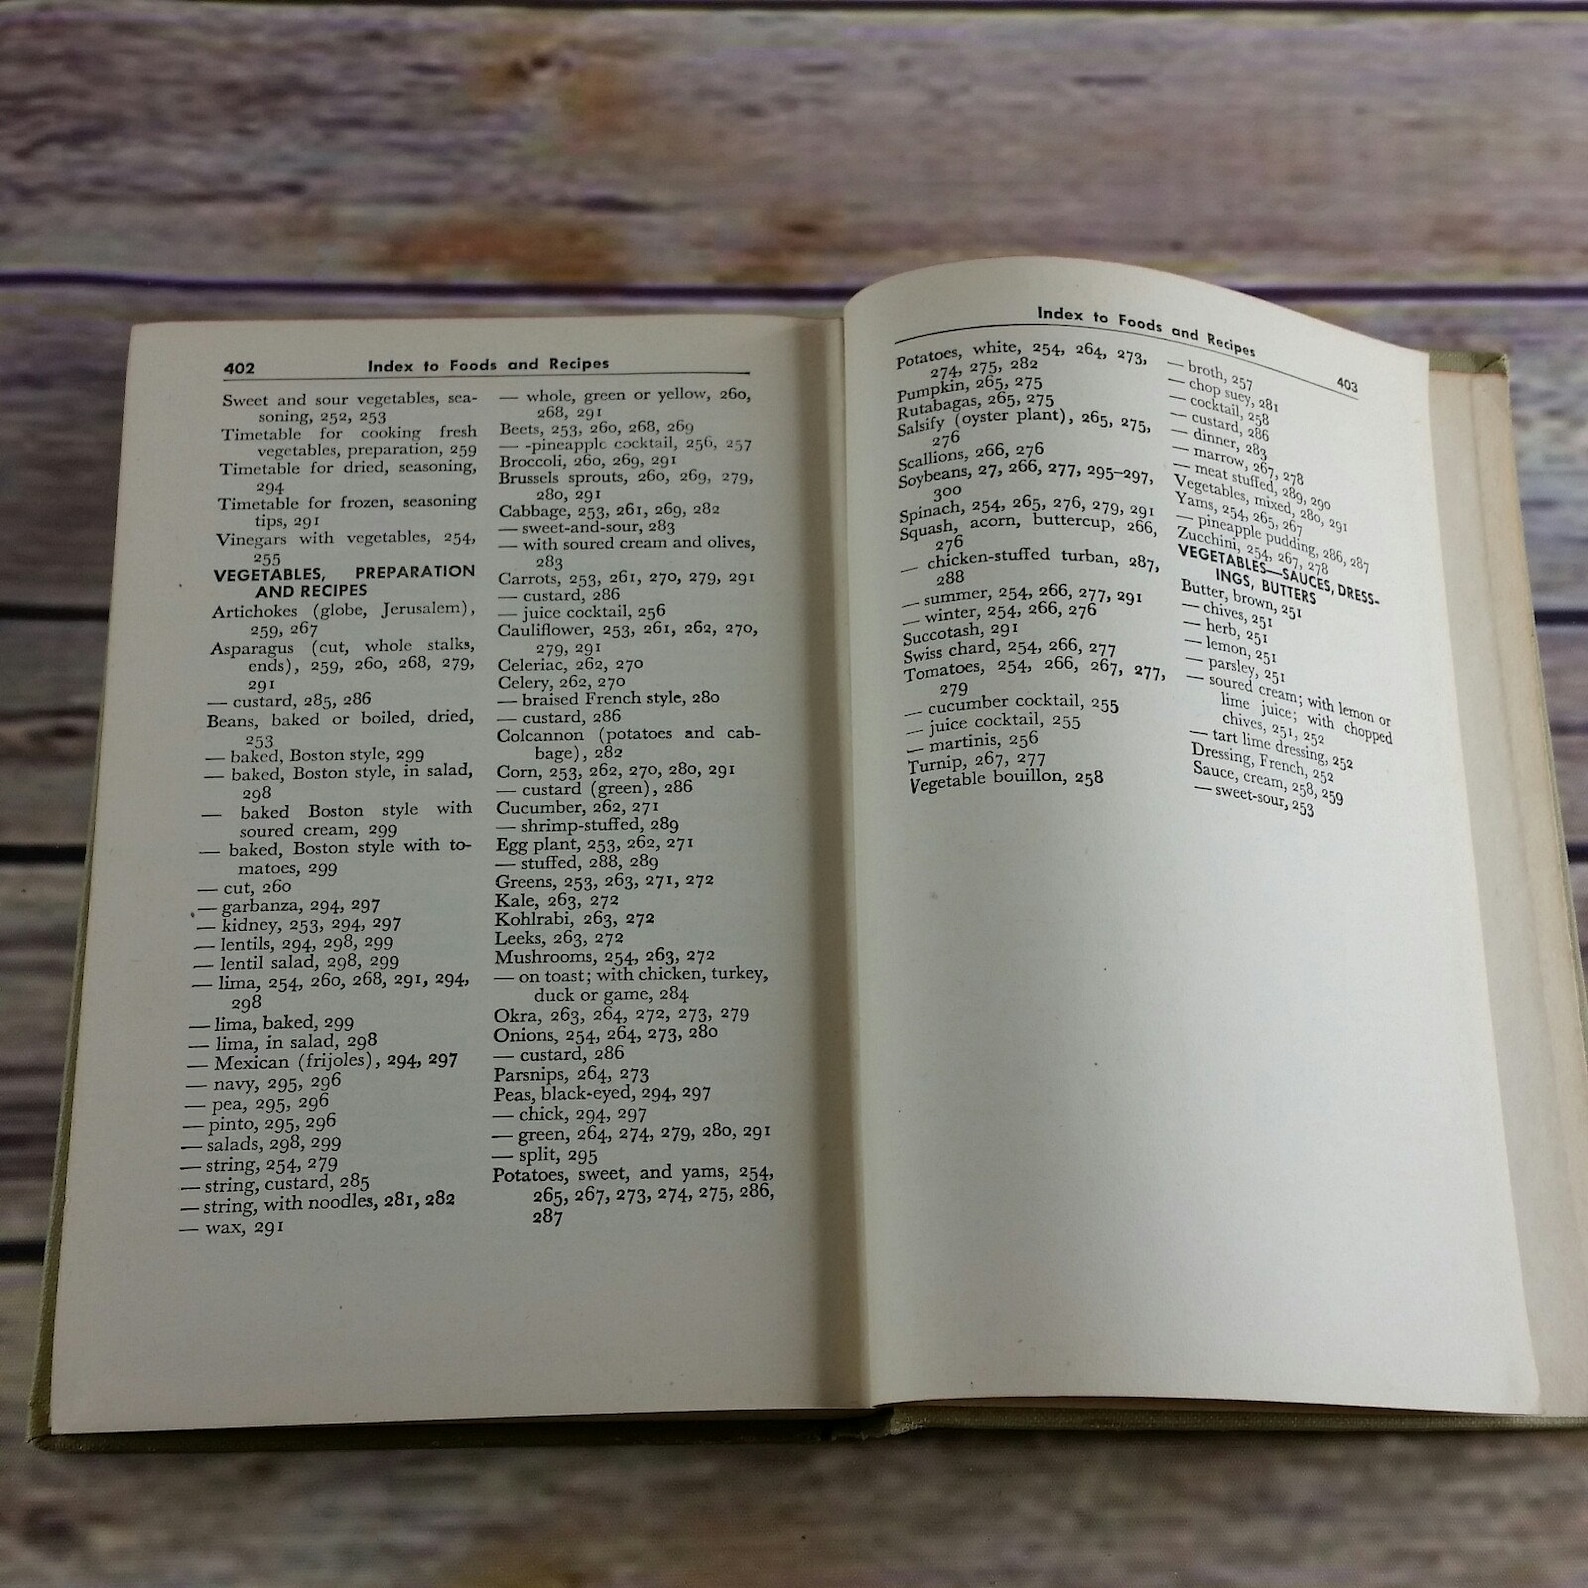 402 Index to Foods and Recipes
Sweet and sour vegetables, sea-
soning, 252, 253
Timetable for cooking fresh
vegetables, preparation, 259
Timetable for dried, seasoning,
294
Timetable for frozen, seasoning
tips, 291
Vinegars with vegetables, 254,
255
VEGETABLES, PREPARATION
AND RECIPES
Artichokes (globe, Jerusalem),
259, 267
Asparagus (cut, whole stalks,
ends), 259, 260, 268, 279,
291
— custard, 285, 286
Beans, baked or boiled, dried,
253
— baked, Boston style, 299
— baked, Boston style, in salad,
298
— baked Boston style with
soured cream, 299
— baked, Boston style with to-
matoes, 299
— cut, 260
— garbanza, 294, 297
— kidney, 253, 294, 297
— lentils, 294, 298, 299
— lentil salad, 298, 299
— lima, 254, 260, 268, 291, 294,
298
— lima, baked, 299
— lima, in salad, 298
— Mexican (frijoles), 294, 297
— navy, 295, 296
— pea, 295, 296
— pinto, 295, 296
— salads, 298, 299
— string, 254, 279
— string, custard, 285
— string, with noodles, 281, 282
— wax, 291
— whole, green or yellow, 260,
268, 291
Beets, 253, 260, 268, 269
— -pineapple cocktail, 256, 257
Broccoli, 260, 269, 291
Brussels sprouts, 260, 269, 279,
280, 291
Cabbage, 253, 261, 269, 282
— sweet-and-sour, 283
— with soured cream and olives,
283
Carrots, 253, 261, 270, 279, 291
— custard, 286
— juice cocktail, 256
Cauliflower, 253, 261, 262, 270,
279, 291
Celeriac, 262, 270
Celery, 262, 270
— braised French style, 280
— custard, 286
Colcannon (potatoes and cab-
bage), 282
Corn, 253, 262, 270, 280, 291
— custard (green), 286
Cucumber, 262, 271
— shrimp-stuffed, 289
Egg plant, 253, 262, 271
— stuffed, 288, 289
Greens, 253, 263, 271, 272
Kale, 263, 272
Kohlrabi, 263, 272
Leeks, 263, 272
Mushrooms, 254, 263, 272
— on toast; with chicken, turkey,
duck or game, 284
Okra, 263, 264, 272, 273, 279
Onions, 254, 264, 273, 280
— custard, 286
Parsnips, 264, 273
Peas, black-eyed, 294, 297
— chick, 294, 297
— green, 264, 274, 279, 280, 291
— split, 295
Potatoes, sweet, and yams, 254,
265, 267, 273, 274, 275, 286,
287
Index to Foods and Recipes 403
Potatoes, white, 254, 264, 273,
274, 275, 282
Pumpkin, 265, 275
Rutabagas, 265, 275
Salsify (oyster plant), 265, 275,
276
Scallions, 266, 276
Soybeans, 27, 266, 277, 295–297,
300
Spinach, 254, 265, 276, 279, 291
Squash, acorn, buttercup, 266,
276
— chicken-stuffed turban, 287,
288
— summer, 254, 266, 277, 291
— winter, 254, 266, 276
Succotash, 291
Swiss chard, 254, 266, 277
Tomatoes, 254, 266, 267, 277,
279
— cucumber cocktail, 255
— juice cocktail, 255
— martinis, 256
Turnip, 267, 277
Vegetable bouillon, 258
— broth, 257
— chop suey, 281
— cocktail, 258
— custard, 286
— dinner, 283
— marrow, 267, 278
— meat stuffed, 289, 290
Vegetables, mixed, 280, 291
Yams, 254, 265, 267
— pineapple pudding, 286, 287
Zucchini, 254, 267, 278
VEGETABLES—SAUCES, DRESS-
INGS, BUTTERS
Butter, brown, 251
— chives, 251
— herb, 251
— lemon, 251
— parsley, 251
— soured cream; with lemon or
lime juice; with chopped
chives, 251, 252
— tart lime dressing, 252
Dressing, French, 252
Sauce, cream, 258, 259
— sweet-sour, 253